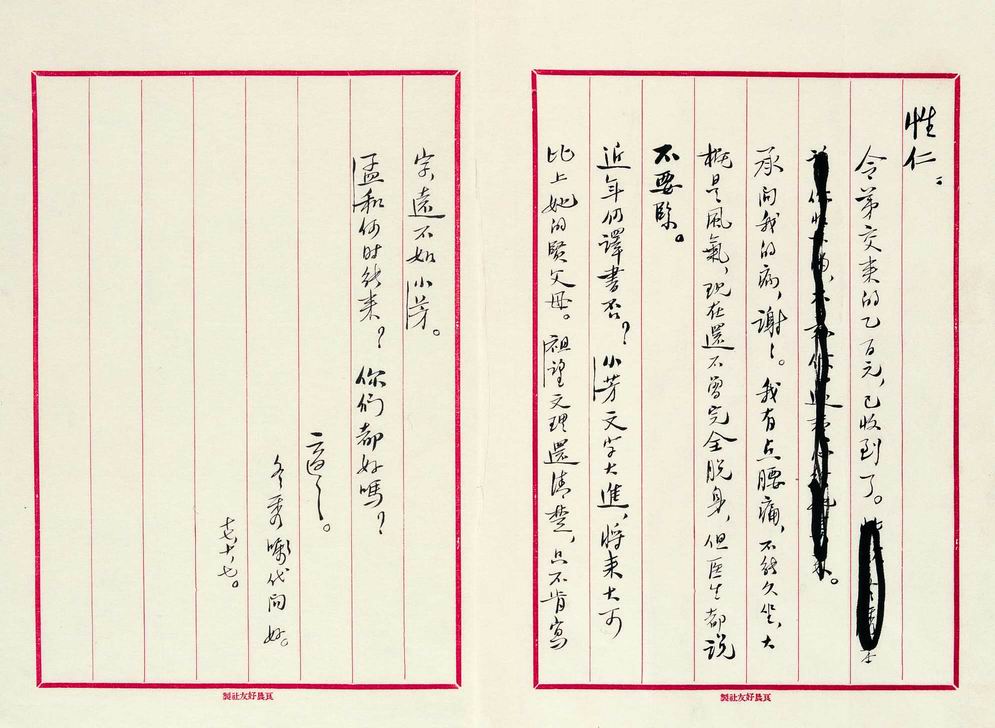 性仁：
令弟交来的乙百元，已收到了。
承问我的病，谢ㄑ。我有点腰痛，不能久坐，大
概是風氣，现在還不曾完全脱身，但医生都说
不要緊。
近年仍譯書否？小芳文字大進，将来大可
比上她的賢父母。祖望文理還清楚，只不肯寫
字，遠不如小芳。
孟和何时能来？你們都好嗎？
適ㄑ。
冬秀嘱代问好。
十七，十，七。
良友好友社製
良友好友社製